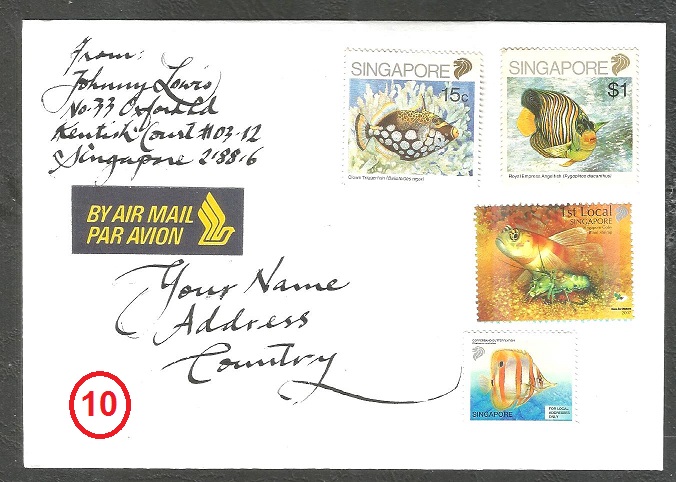 From:
Johnny Lowis
No.33 Oxford Rd
Kentish Court #03-12
Singapore 218816
BY AIR MAIL
PAR AVION
Your Name
Address
Country
10
SINGAPORE
15c
Clown Triggerfish (Balistoides niger)
SINGAPORE
$1
Royal Empress Angelfish (Pygoplites diacanthus)
1st Local
SINGAPORE
COPPERBAND BUTTERFLYFISH
SINGAPORE
FOR LOCAL
ADDRESSES
ONLY